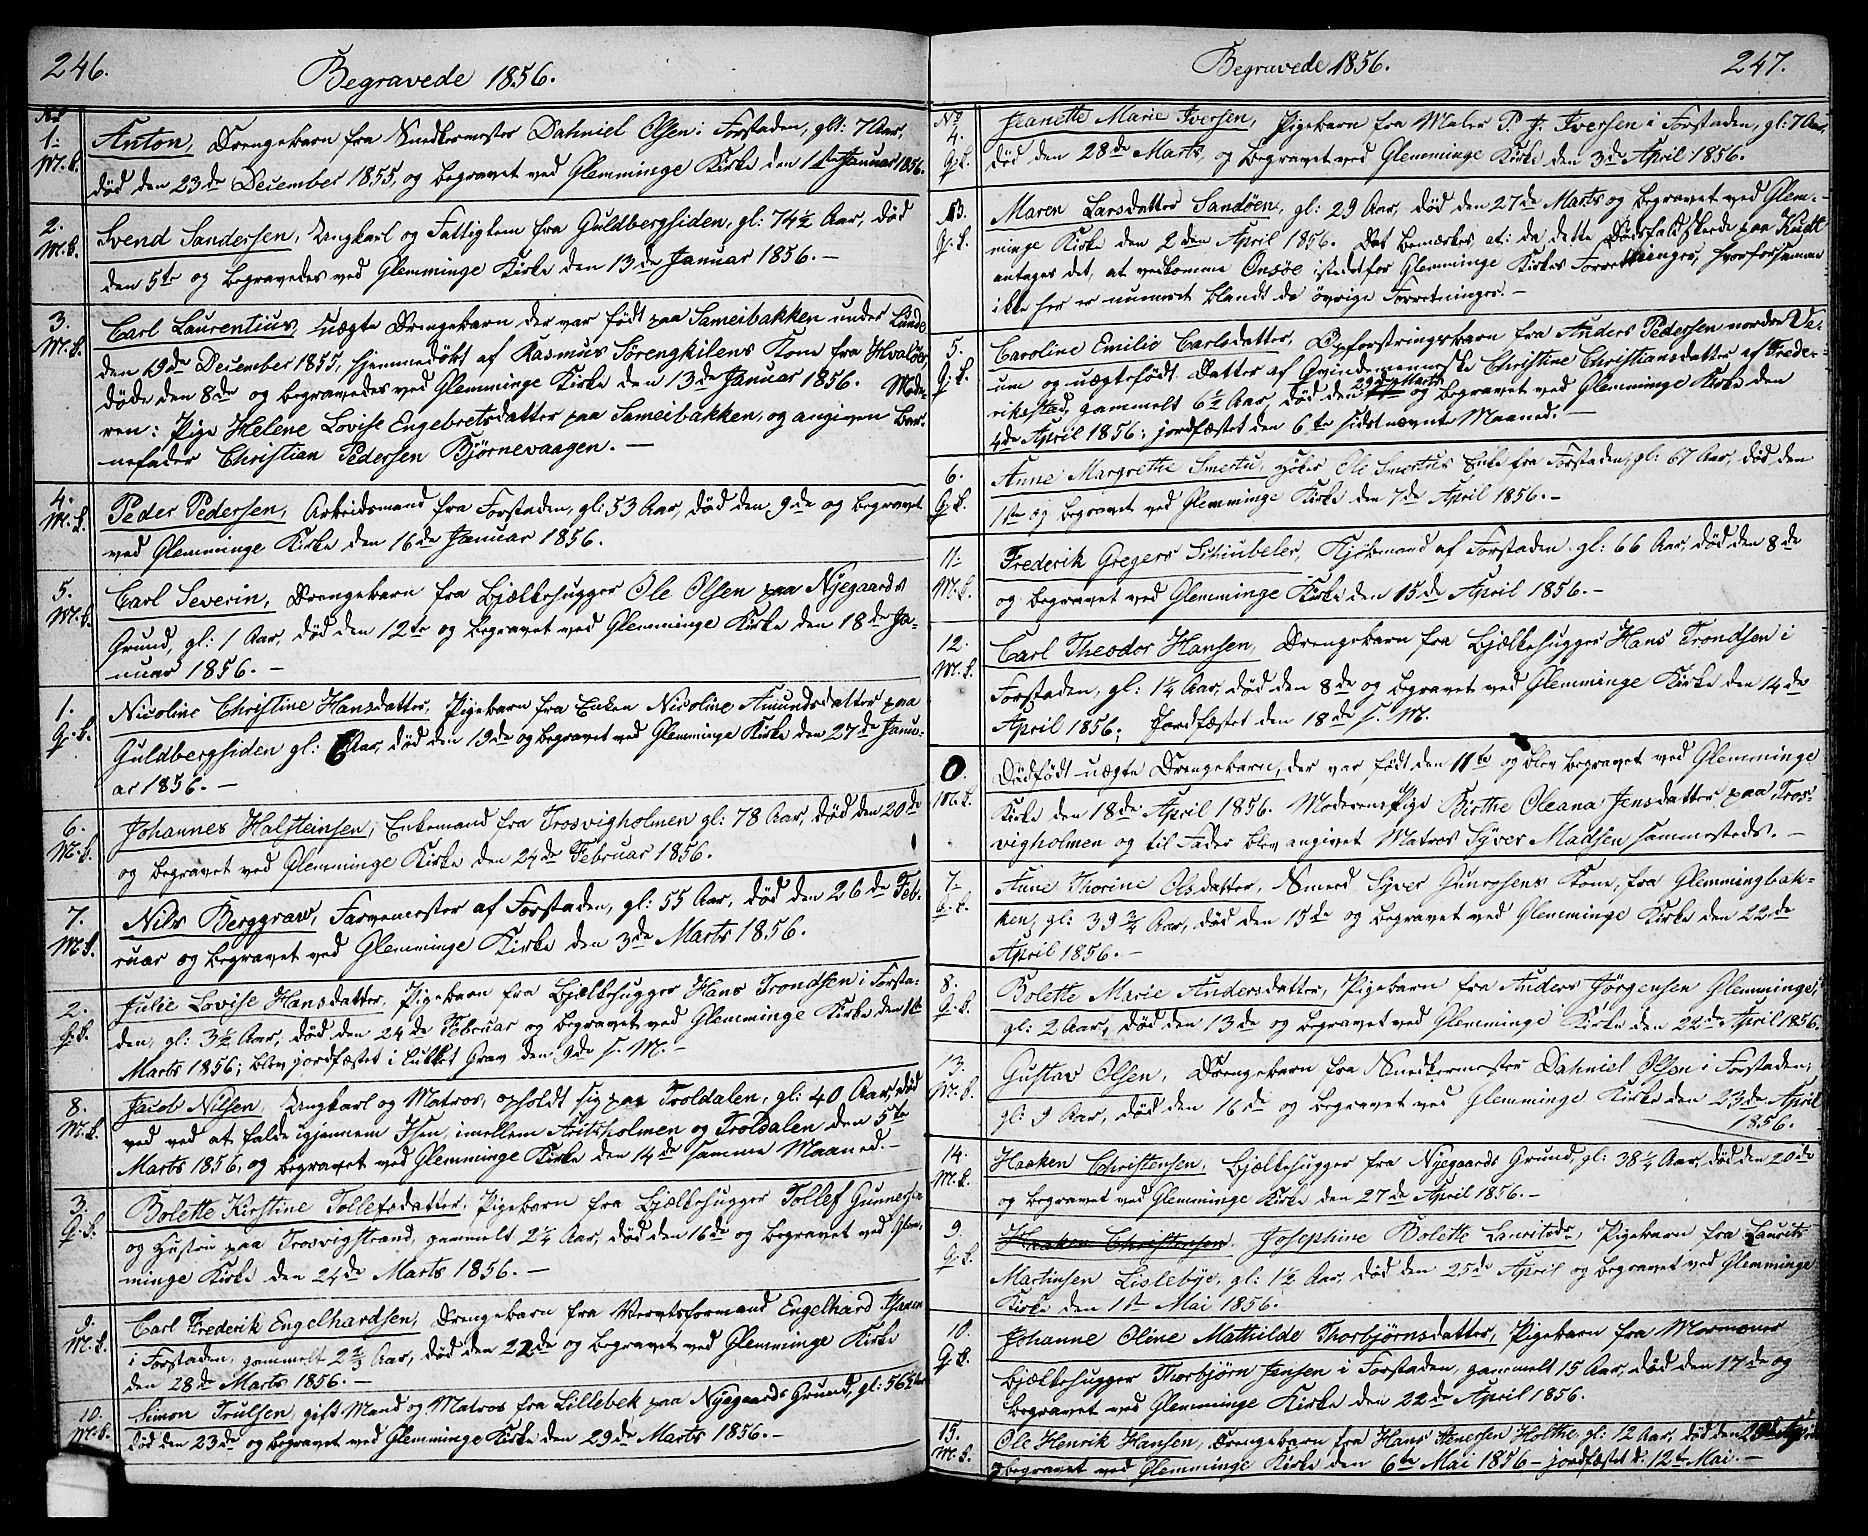 246.
Begravede 1856.
No
1.
M.k.
Anton, Drengebarn fra Snedkermester Dahniel Olsen i Forstaden, gl: 7 Aar,
død den 23de December 1855, og begravet ved Glemminge Kirke den 1ste Januar 1856.
2.
M.k.
Svend Sandersen, Ungkarl og Fattiglem fra Guldbergsiden, gl: 74½ Aar, død
den 5te og begravedes ved Glemminge Kirke den 13de Januar 1856. –
3.
M.k.
Carl Laurentius, uægte Drengebarn der var født paa Sameibakken under Lunde
den 19de December 1855, hjemmedøbt af Rasmus Sørengkilens Kone fra Hvaløer,
døde den 8de og begravedes ved Glemminge Kirke den 13de Januar 1856. Mode-
ren: Pige Helene Lovise Engebretsdatter paa Sameibakken, og angiven Bar-
nefader Christian Pedersen Bjørnevaagen. –
4.
M.k.
Peder Pedersen, Arbeidsmand fra Forstaden, gl: 53 Aar, død den 9de og begravet
ved Glemminge Kirke den 16de Januar 1856.
5.
M.k.
Carl Severin, Drengebarn fra Bjælkehugger Ole Olsen paa Nyegaards
Grund, gl: 1 Aar, død den 12te og begravet ved Glemminge Kirke den 18de Ja-
nuar 1856. –
1.
Q.k.
Nicoline Christine Hansdatter, Pigebarn fra Enken Nicoline Amundsdatter paa
Guldbergsiden gl: 6 Aar, død den 19de og begravet ved Glemminge Kirke den 27de Janu-
ar 1856. –
6.
M.k.
Johannes Halsteinsen, Enkemand fra Trosvigholmen gl: 78 Aar, død den 20de
og begravet ved Glemminge Kirke den 24de Februar 1856.
7.
M.k.
Nils Berggraw, Farvemester af Forstaden, gl: 55 Aar, død den 26de Feb-
ruar og begravet ved Glemminge Kirke den 3de Marts 1856.
2.
Q.k.
Julie Lovise Hansdatter, Pigebarn fra Bjælkehugger Hans Trondsen i Forsta-
den, gl: 3½ Aar, død den 24de Februar og begravet ved Glemminge Kirke den 1ste
Marts 1856; blev jordfæstet i lukket Grav den 9de s. M. –
8.
M.k.
Jacob Nilsen, Ungkarl og Matros, opholdt sig paa Troldalen, gl: 40 Aar, død
ved ved at falde igjennem Isen, imellem Arisholmen og Troldalen den 5te
Marts 1856, og begravet ved Glemminge Kirke den 14de samme Maaned. –
3.
Q.k.
Bolette Kirstine Tollefsdatter, Pigebarn fra Bjælkehugger Tollef Gunnersen
og Hustru paa Trosvigstrand, gammelt 2¼ Aar, død den 16de og begravet ved Glem-
minge Kirke den 24de Marts 1856. –
9.
M.k.
Carl Frederik Engelhardsen, Drengebarn fra Værvtsformand Engelhard
i Forstaden, gammelt 2⅔ Aar, død den 22de og begravet ved Glemminge Kirke
den 28de Marts 1856. –
10.
M.k.
Simon Trulsen, gift Mand og Matros fra Lillebek paa Nyegaards Grund, gl: 56½ Aar
død den 23de og begravet ved Glemminge Kirke den 29de Marts 1856. –
Begravede 1856.
247.
No
4.
Q.k.
Jeanette Marie Iversen, Pigebarn fra Maler P. J. Iversen i Forstaden, gl: 7 Aar,
død den 28de Marts, og begravet ved Glemminge Kirke den 3de April 1856.
Q.k.
Maren Larsdatter Sandøen, gl: 29 Aar, død den 27de Marts og begravet ved Glem-
minge Kirke den 2den April 1856. Det bemærkes, at: da dette Dødsfald skede paa
antages det, at vedkomme Onsøe istedetfor Glemminge Kirkes Forretninger, hvorfor samme
ikke her er numeret blandt de øvrige Forretninger. –
5.
Q.k.
Caroline Emilie Carlsdatter, Opfostringsbarn fra Anders Pedersen nordre Ve-
um og uægtefødt Datter af Qvindemenneske Christine Christiansdatter af Frede-
rikstad, gammelt 6½ Aar, død den 29de Marts og begravet ved Glemminge Kirke den
4de April 1856; jordfæstet den 6te sidstnævnte Maaned. –
6.
Q.k.
Anne Margrethe Smertu, Høker Ole Smertus Enke fra Forstaden, gl: 67 Aar, død den
1ste og begravet ved Glemminge Kirke den 7de April 1856. –
11.
M.k.
Frederik Gregers Schiubeler, Kjøbmand af Forstaden gl: 66 Aar, død den 8de
og begravet ved Glemminge Kirke den 15de April 1856. –
12.
M.k.
Carl Theodor Hansen, Drengebarn fra Bjælkehugger Hans Trondsen i
Forstaden, gl: 1¼ Aar, død den 8de og begravet ved Glemminge Kirke den 14de
April 1856; Jordfæstet den 18de s. M.
0.
M.k.
Dødfødt uægte Drengebarn, der var født den 11te og blev begravet ved Glemminge
Kirke den 18de April 1856. Moderen: Pige Birthe Oleana Jensdatter paa Tros-
vigholmen og til Fader blev angivet Matros Syver Madsen sammesteds. –
7.
Q.k.
Anne Thorine Olsdatter, Smed Syver Kone, fra Glemmingbak-
ken, gl: 39¾ Aar, død den 15de og begravet ved Glemminge Kirke den 22de
April 1856. –
8.
Q.k.
Bolette Marie Andersdatter, Pigebarn fra Anders Jørgensen Glemminge,
gl: 2 Aar, død den 13de og begravet ved Glemminge Kirke den 22de April 1856.
13.
M.k.
Gustav Olsen, Drengebarn fra Snedkermester Dahniel Olsen i Forstaden,
gl: 9 Aar, død den 16de og begravet ved Glemminge Kirke den 23de April
1856.
14.
M.k.
Haaken Christensen, Bjælkehugger fra Nyegaards Grund, gl: 38¼ Aar, død den 20de
og begravet ved Glemminge Kirke den 27de April 1856. –
9.
Q.k.
Haaken Christensen, Josephine Bolette Lauritsd., Pigebarn fra Laurits
Martinsen Lislebye, gl: 1½ Aar, død den 25de April og begravet ved Glemminge
Kirke den 1ste Mai 1856.
10.
Q.k.
Johanne Oline Mathilde Thorbjørnsdatter, Pigebarn fra Mormoner
Bjælkehugger Thorbjørn Jensen i Forstaden, gammelt 15 Aar, død den 17de og
begravet ved Glemminge Kirke den 22de April 1856.
15.
M.k.
Ole Henrik Hansen, Drengebarn fra Hans Holthe, gl: 12 Aar, død den 29de April
begravet ved Glemminge Kirke den 6te Mai 1856 – jordfæstet d. 12te Mai. –